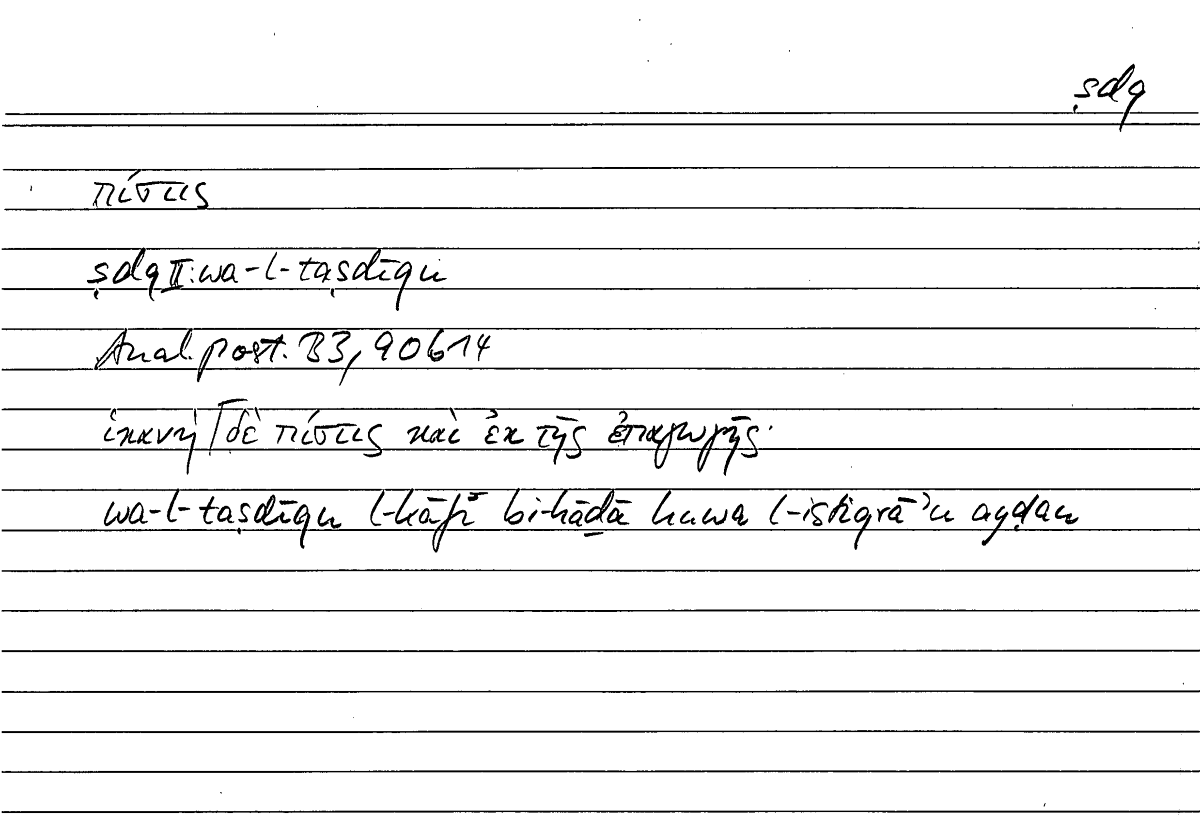 ṣdq
πίστις
ṣdq II: wa-l-taṣdīqu
Anal. post. B3, 90b14
ἱκανὴ | δὲ πίστις καὶ ἐκ τῆς ἐπαγωγῆς·
wa-l-taṣdīqu l-kāfī bi-hāḏā huwa l-istiqrāʾu ayḍan